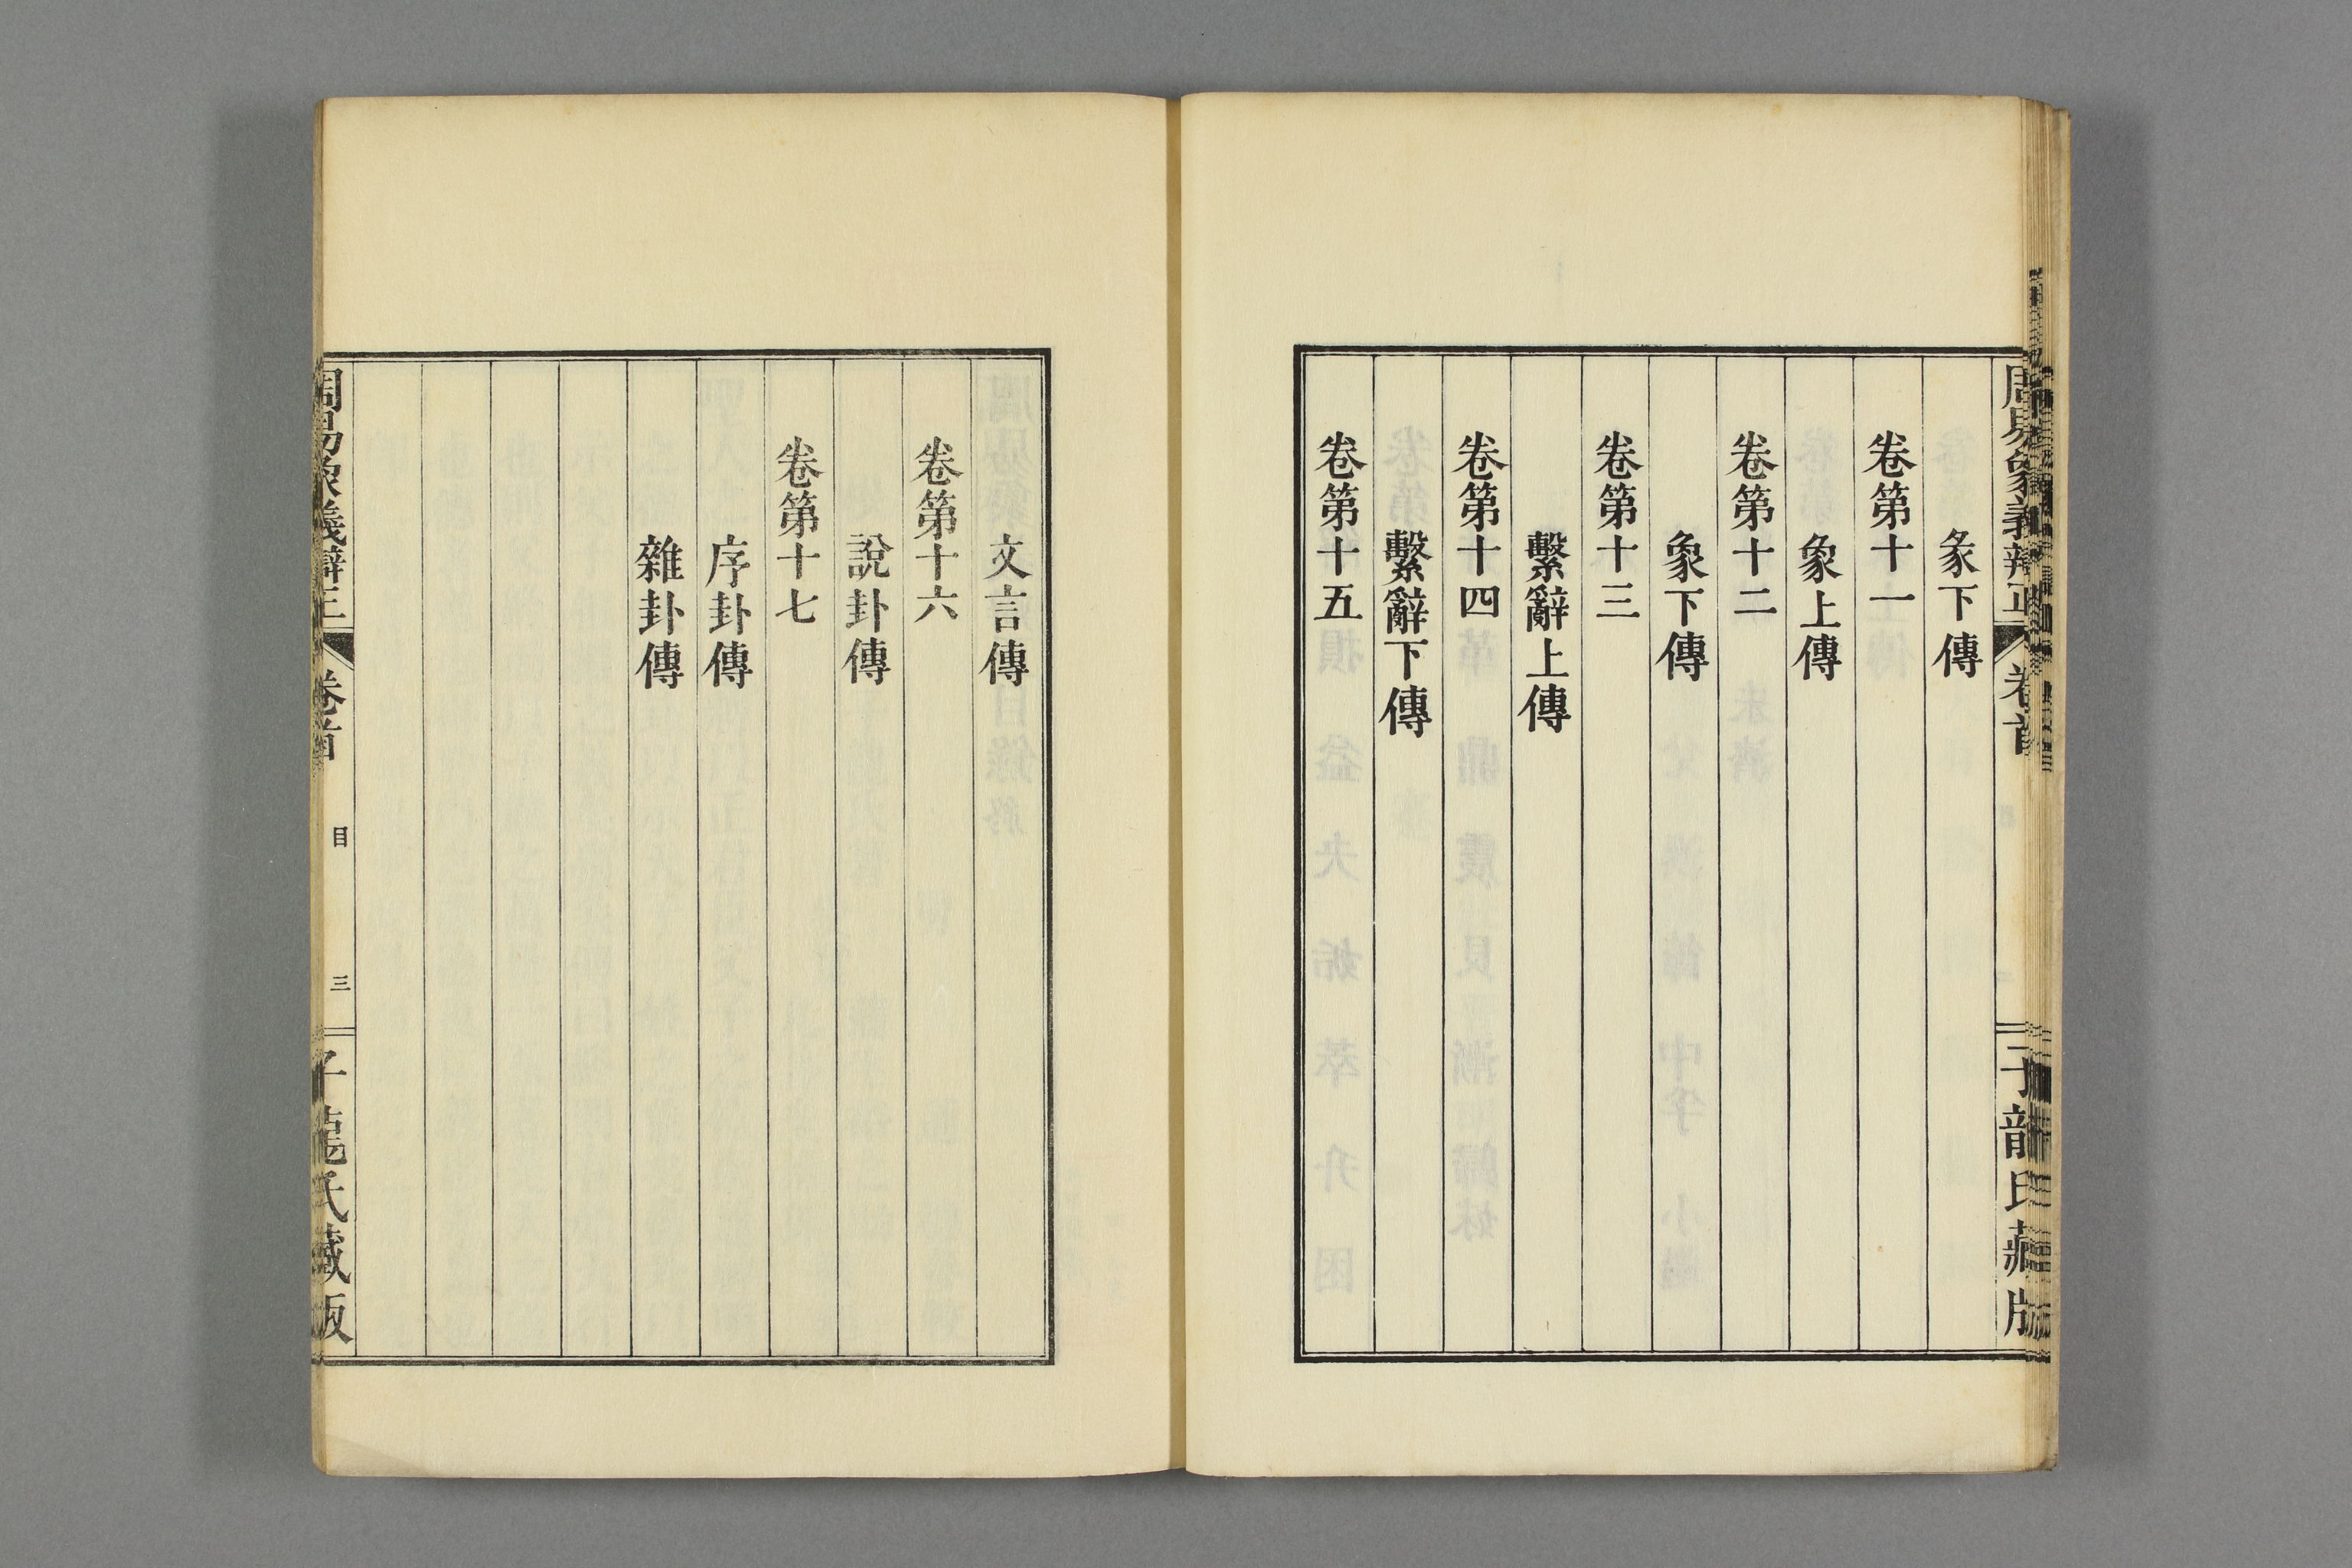 彖下傳
卷第十一
象上傳
卷第十二
象下傳
卷第十三
繫辭上傳
卷第十四
繫辭下傳
卷第十五
文言傳
卷第十六
說卦傳
卷第十七
序卦傳
雜卦傳
周易象義辯正
卷首
目
三
子龍氏藏版